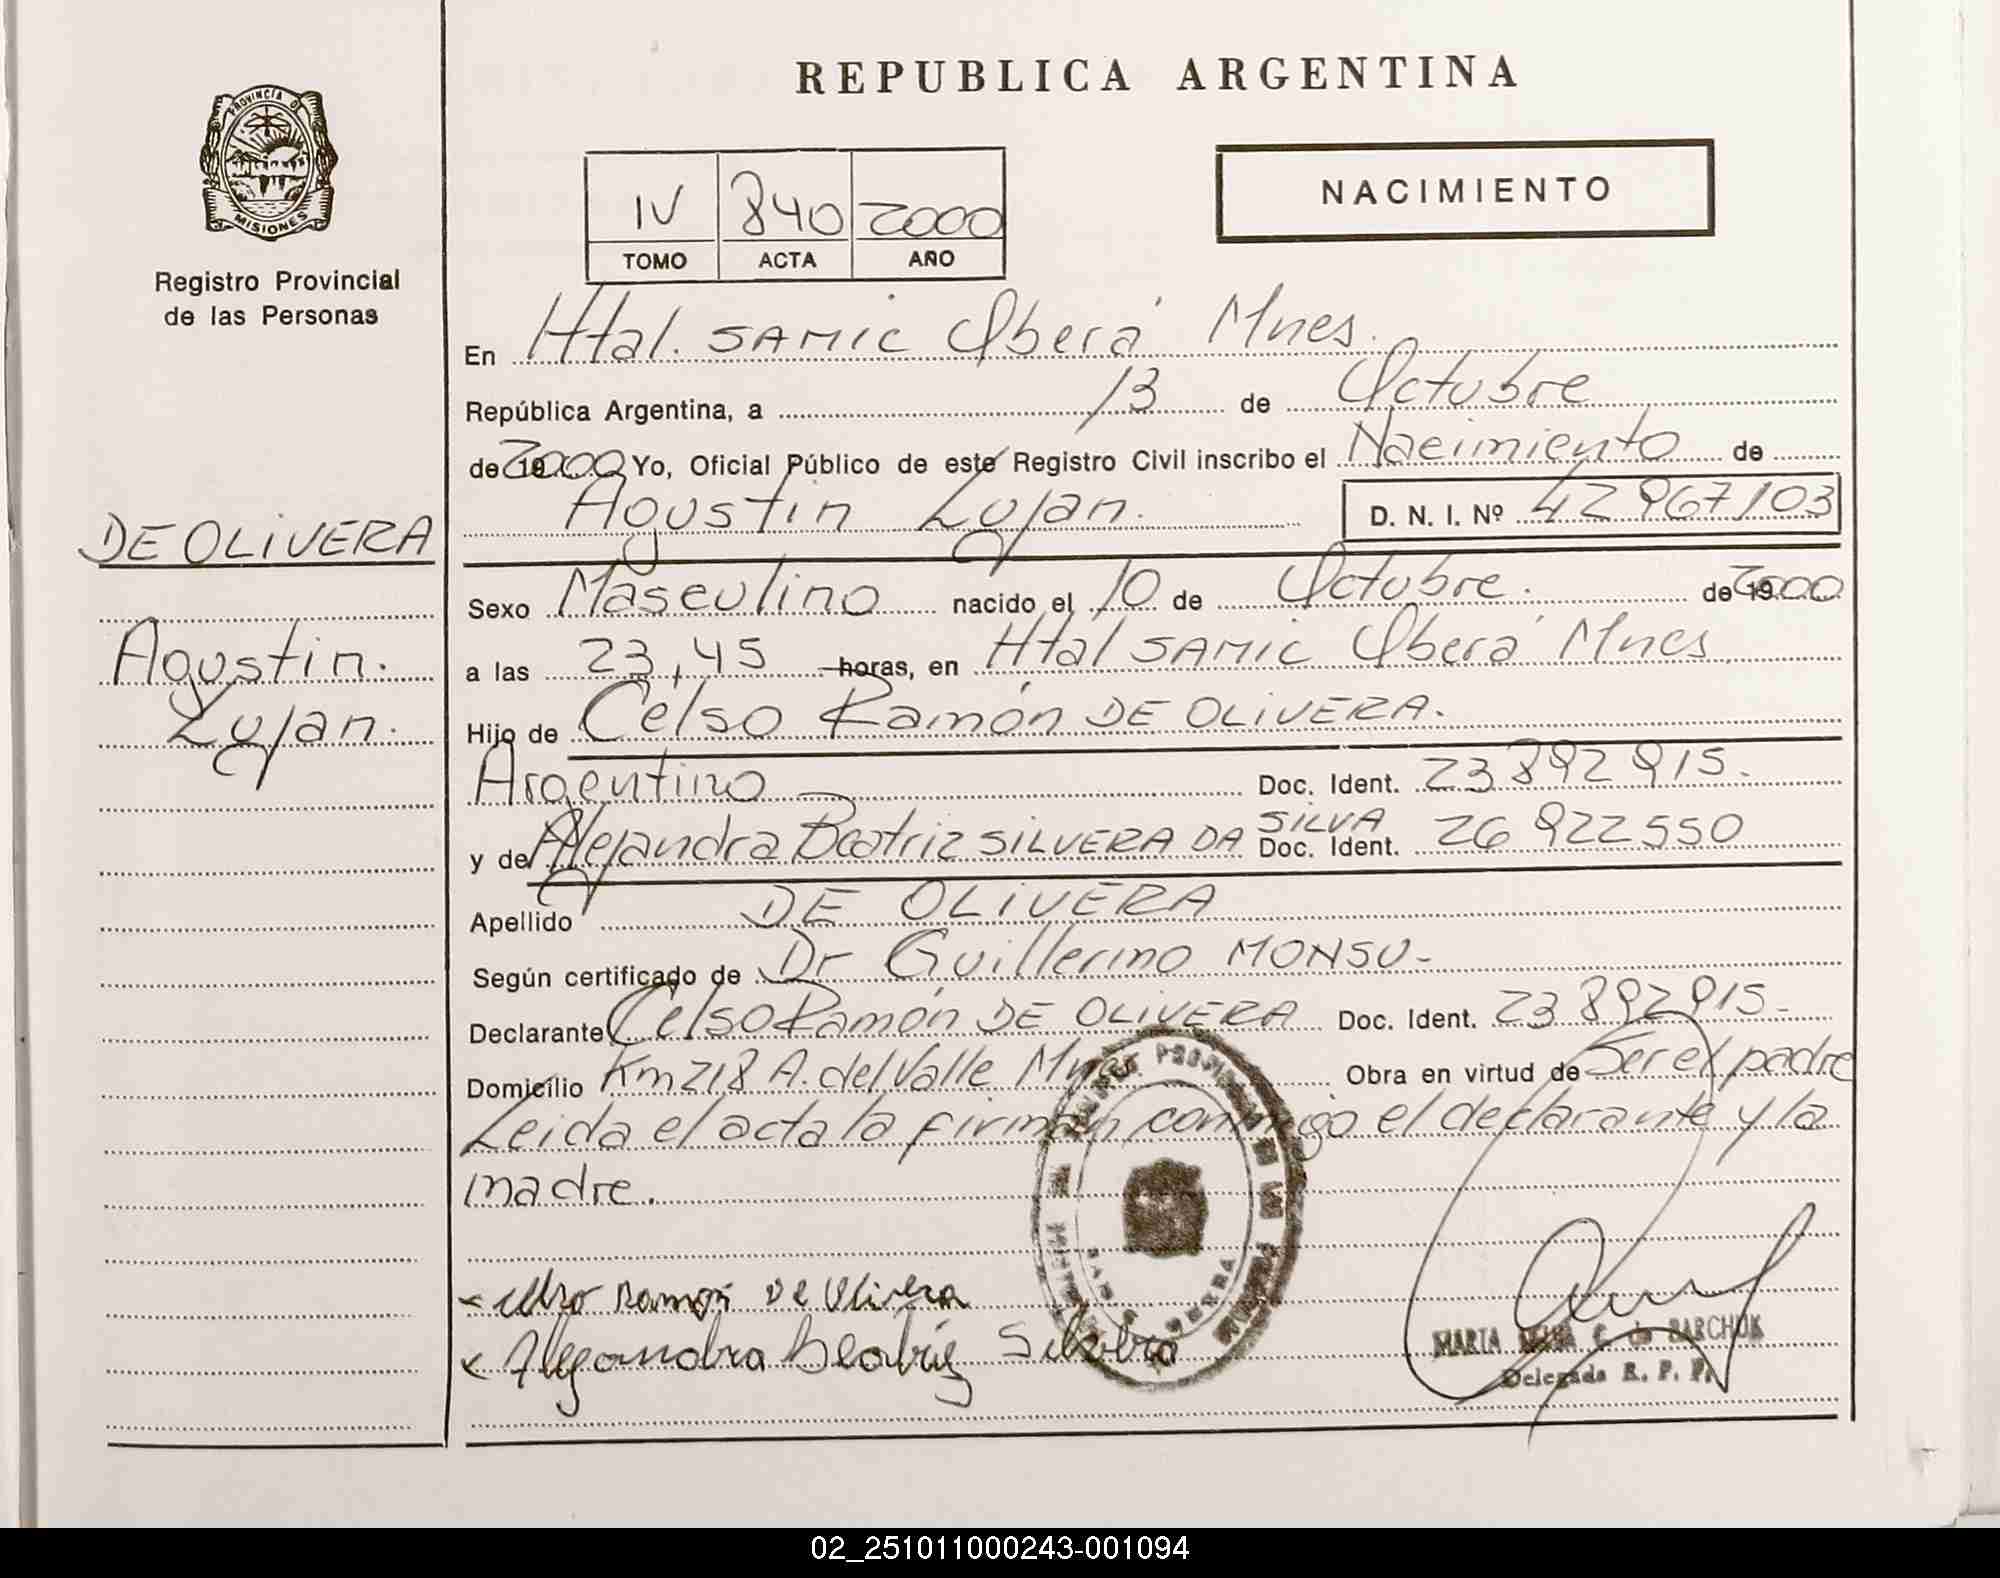 REPUBLICA ARGENTINA
PROVINCIA DE
MISIONES
Registro Provincial
de las Personas
NACIMIENTO
IV 840 2000
TOMO ACTA AÑO
En Htal. SAMIC Oberá Mnes.
República Argentina, a 13 de Octubre
de 2000 Yo, Oficial Público de este Registro Civil inscribo el Nacimiento de
Agustin Lujan. D. N. I. Nº 42967103
DE OLIVERA
Agustin.
Lujan.
Sexo Masculino nacido el 10 de Octubre. de 2000
a las 23,45 horas, en Htal SAMIC Oberá Mnes
Hijo de Celso Ramón DE OLIVERA.
Argentino Doc. Ident. 23892915.
y de Alejandra Beatriz SILVERA DA SILVA Doc. Ident. 26922550
Apellido DE OLIVERA
Según certificado de Dr Guillermo MONSU-
Declarante Celso Ramón DE OLIVERA Doc. Ident. 23892915-
Domicilio Km 218 A. del Valle Mnes Obra en virtud de Ser el padre
Leida el acta la firman conmigo el declarante y la
madre.
Celso Ramon De Olivera
Alejandra Beatriz Silvera
MARTA C. de BARCHUK
Delegada R. P. P.
02_251011000243-001094